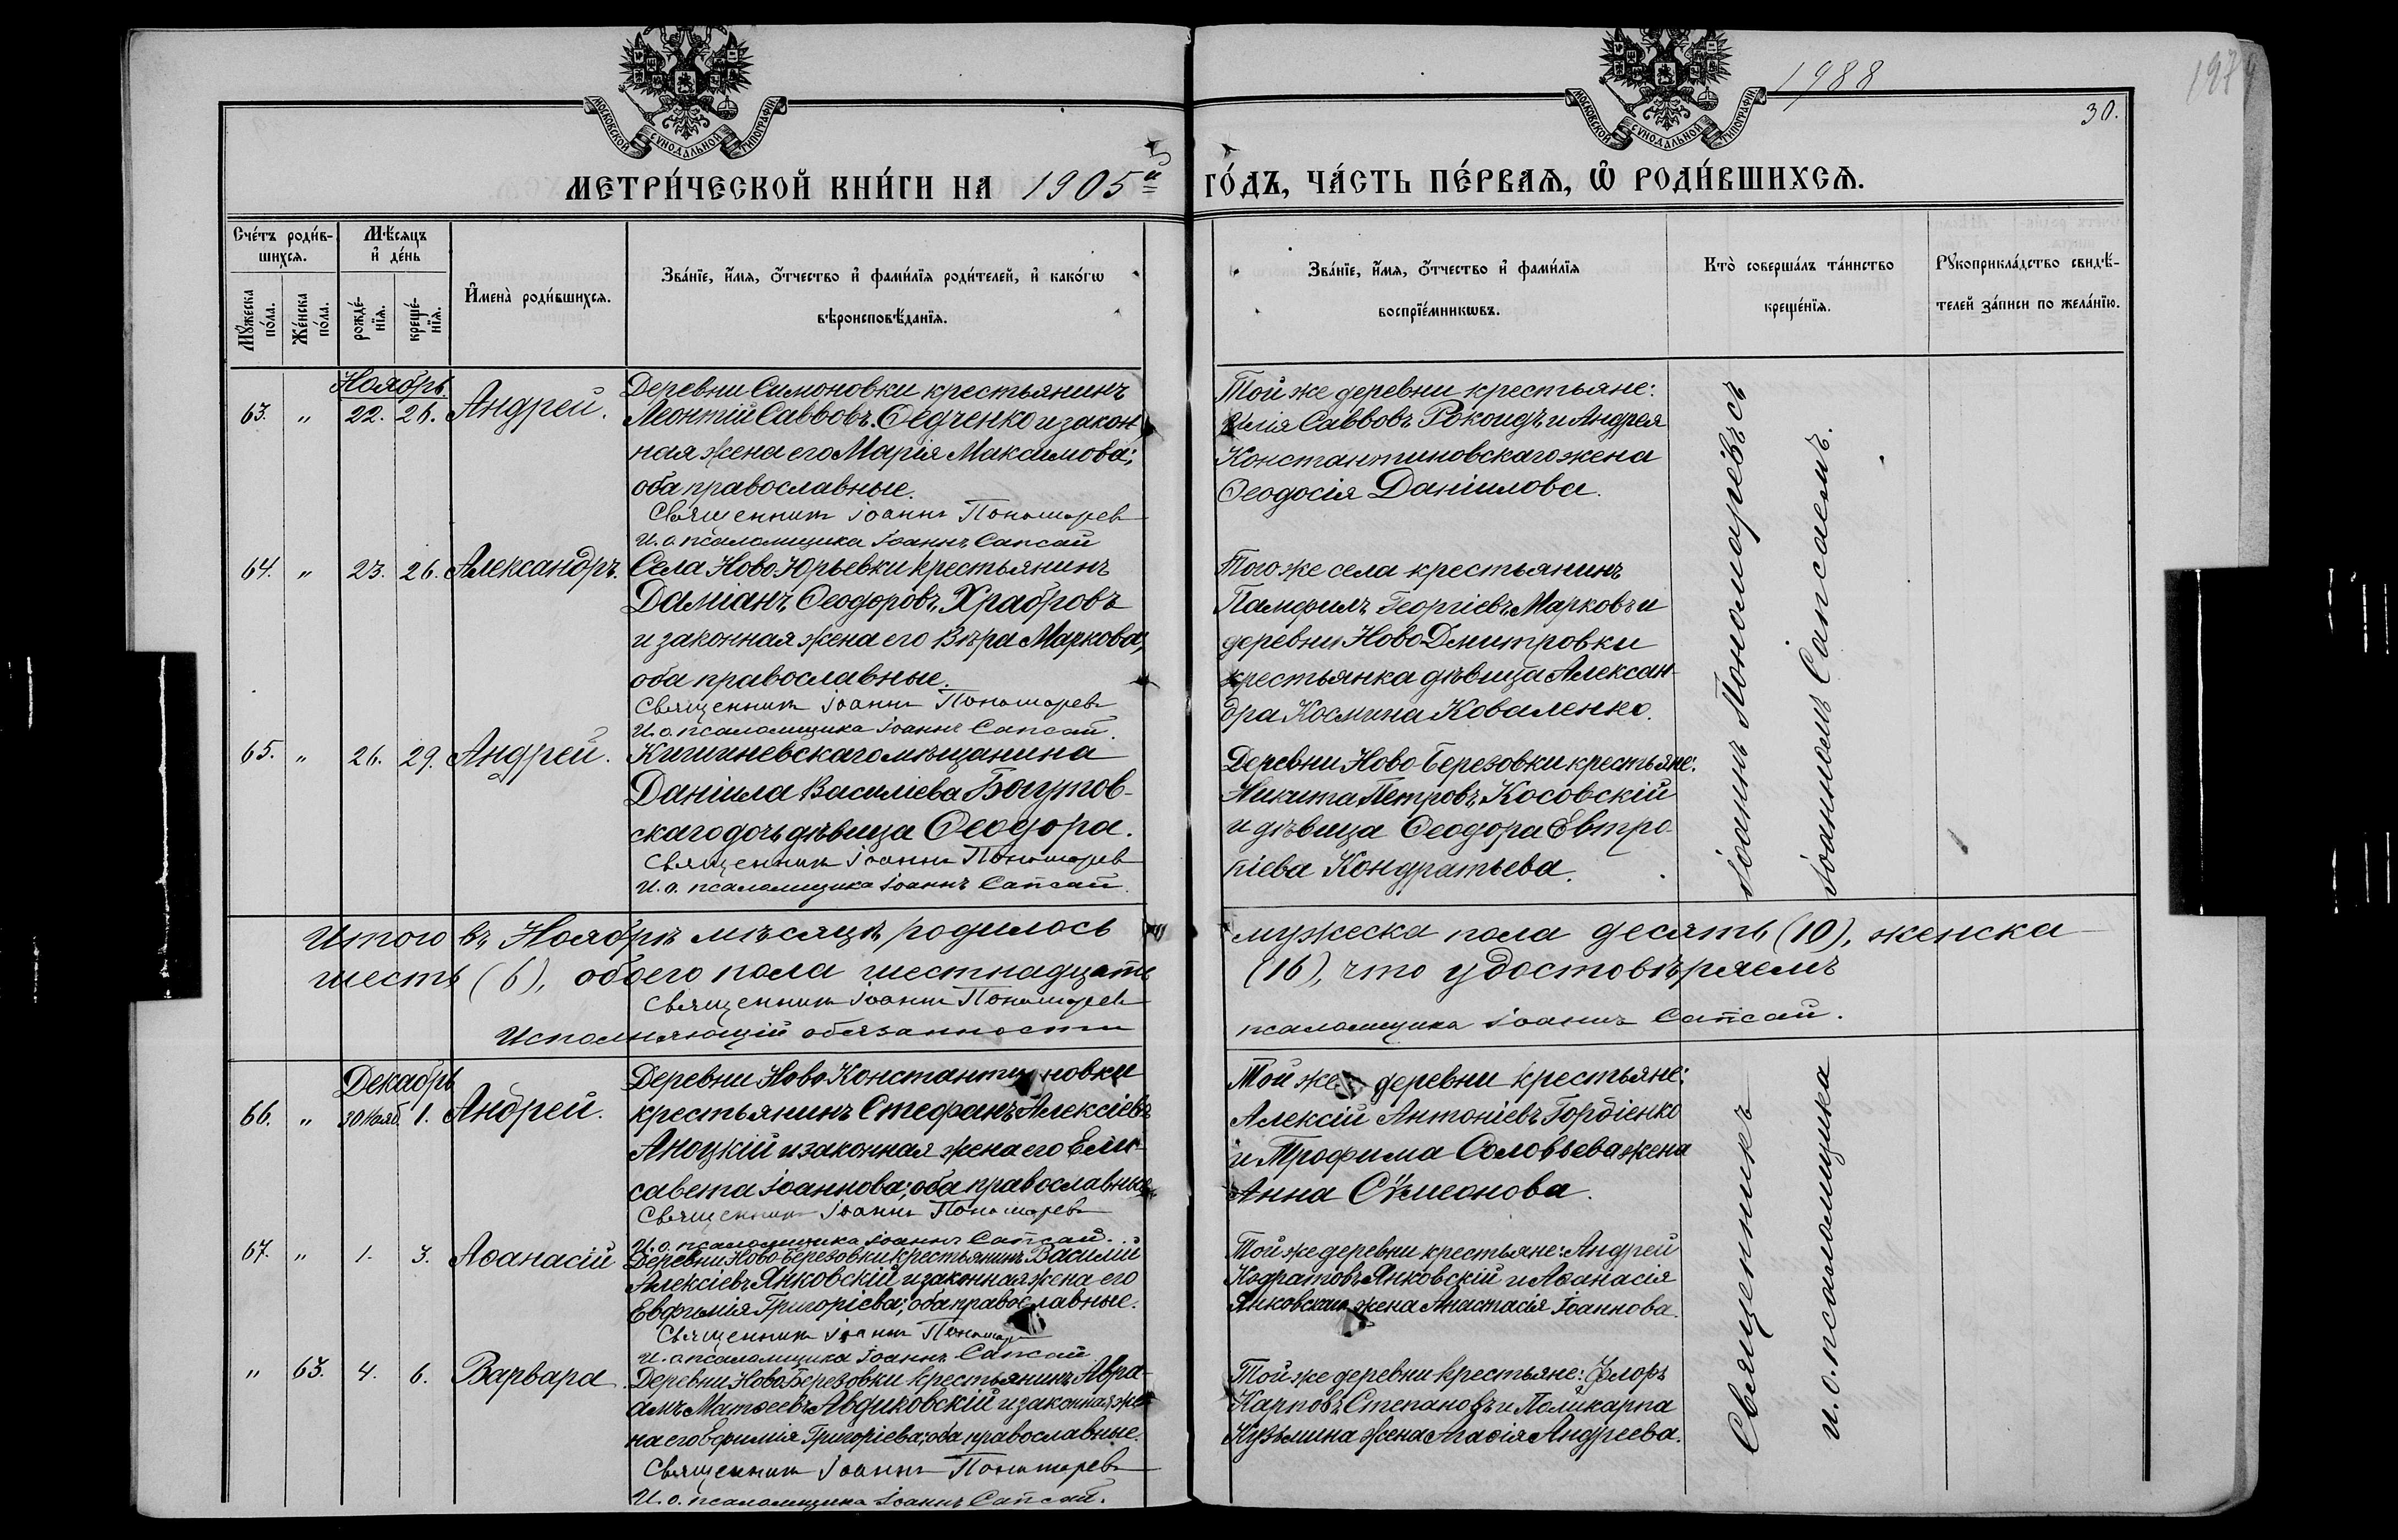 1988
197
30.
МОСКОВСКОЙ СѴНОДАЛЬНОЙ ТИПОГРАФІИ
МОСКОВСКОЙ СѴНОДАЛЬНОЙ ТИПОГРАФІИ
МЕТРИ́ЧЕСКОЙ КНИ́ГИ НА 1905й ГО́ДЪ, ЧА́СТЬ ПЕ́РВАѦ, Ѡ РОДИ́ВШИХСѦ.
Сче́тъ роди́в-
шихсѧ.
Мѣ́сяцъ
и҆ де́нь
Мꙋ́жеска по́ла.
Же́нска по́ла.
рожде́-
нїѧ.
креще́-
нїѧ.
И҆мена̀ роди́вшихсѧ.
Зва́нїе, и҆́мѧ, ѻ҆́тчество и҆ фами́лїѧ роди́телей, и҆ како́гѡ
вѣроисповѣ́данїѧ.
Зва́нїе, и҆́мѧ, ѻ҆́тчество и҆ фами́лїѧ
воспрїе́мникѡвъ.
Кто̀ соверша́лъ та́инство
креще́нїѧ.
Рꙋкоприкла́дство свидѣ́-
телей за́писи по жела́нїю.
Ноябрь.
63. " 22. 26. Андрей.
Деревни Симоновки крестьянинъ
Леонтій Саввовъ Ѳедченко и закон
ная жена его Марія Максимова;
оба православные.
Священникъ Іоаннъ Пономарев
И. о. псаломщика Іоаннъ Сапсай
Той же деревни крестьяне:
Илія Саввовъ Рокоидъ и Андрея
Константиновскаго жена
Ѳеодосія Даніилова.
64. " 23. 26. Александръ.
Села Ново-Юрьевки крестьянинъ
Даміанъ Ѳеодоровъ Храбровъ
и законная жена его Вѣра Маркова;
оба православные.
Священникъ Іоаннъ Пономарев
И. о. псаломщика Іоаннъ Сапсай.
Того же села крестьянинъ
Памфилъ Георгіевъ Марковъ и
деревни Ново Дмитровки
крестьянка дѣвица Алексан-
дра Космина Коваленко.
65. " 26. 29. Андрей.
Кишиневскаго мѣщанина
Даніила Василіева Богутов-
скаго дочь дѣвица Ѳеодора.
Священникъ Іоаннъ Пономарев
И. о. псаломщика Іоаннъ Сапсай.
Деревни Ново-Березовки крестьяне:
Никита Петровъ Косовскій
и дѣвица Ѳеодора Евтро-
піева Кондратьева.
Іоаннъ Пономаревъ съ
Іоанномъ Сапсаемъ.
Итого въ Ноябрѣ мѣсяцѣ родилось мужеска пола десять (10), женска
шесть (6), обоего пола шестнадцать (16), что удостовѣряемъ
Священникъ Іоаннъ Пономарев
Исполняющій обязанности псаломщика Іоаннъ Сапсай.
Декабрь
66. " 30 Нояб. 1. Андрей.
Деревни Ново Константиновки
крестьянинъ Стефанъ Алексіевъ
Яноцкій и законная жена его Ели-
савета Іоаннова; оба православные.
Священникъ Іоаннъ Пономарев
И. о. псаломщика Іоаннъ Сапсай.
Той же деревни крестьяне:
Алексій Антоніевъ Гордіенко
и Трофима Соловьева жена
Анна Сѵмеонова.
67. " 1. 3. Аѳанасій
Деревни Ново-Березовки крестьянинъ Василій
Алексіевъ Янковскій и законная жена его
Евфимія Григоріева; оба православные.
Священникъ Іоаннъ Пономар
И. о. псаломщика Іоаннъ Сапсай
Той же деревни крестьяне: Андрей
Кодратовъ Янковскій и Аѳанасія
Янковскаго жена Анастасія Іоаннова.
" 63. 4. 6. Варвара
Деревни Ново Березовки крестьянинъ Авра-
амъ Матѳеевъ Авдиковскій и законная же-
на его Евфимія Григоріева; оба православные.
Священникъ Іоаннъ Пономарев
И. о. псаломщика Іоаннъ Сапсай.
Той же деревни крестьяне: Флоръ
Карповъ Степановъ и Поликарпа
Кузьмина жена Агаѳія Андреева.
Священникъ
и. о. псаломщика